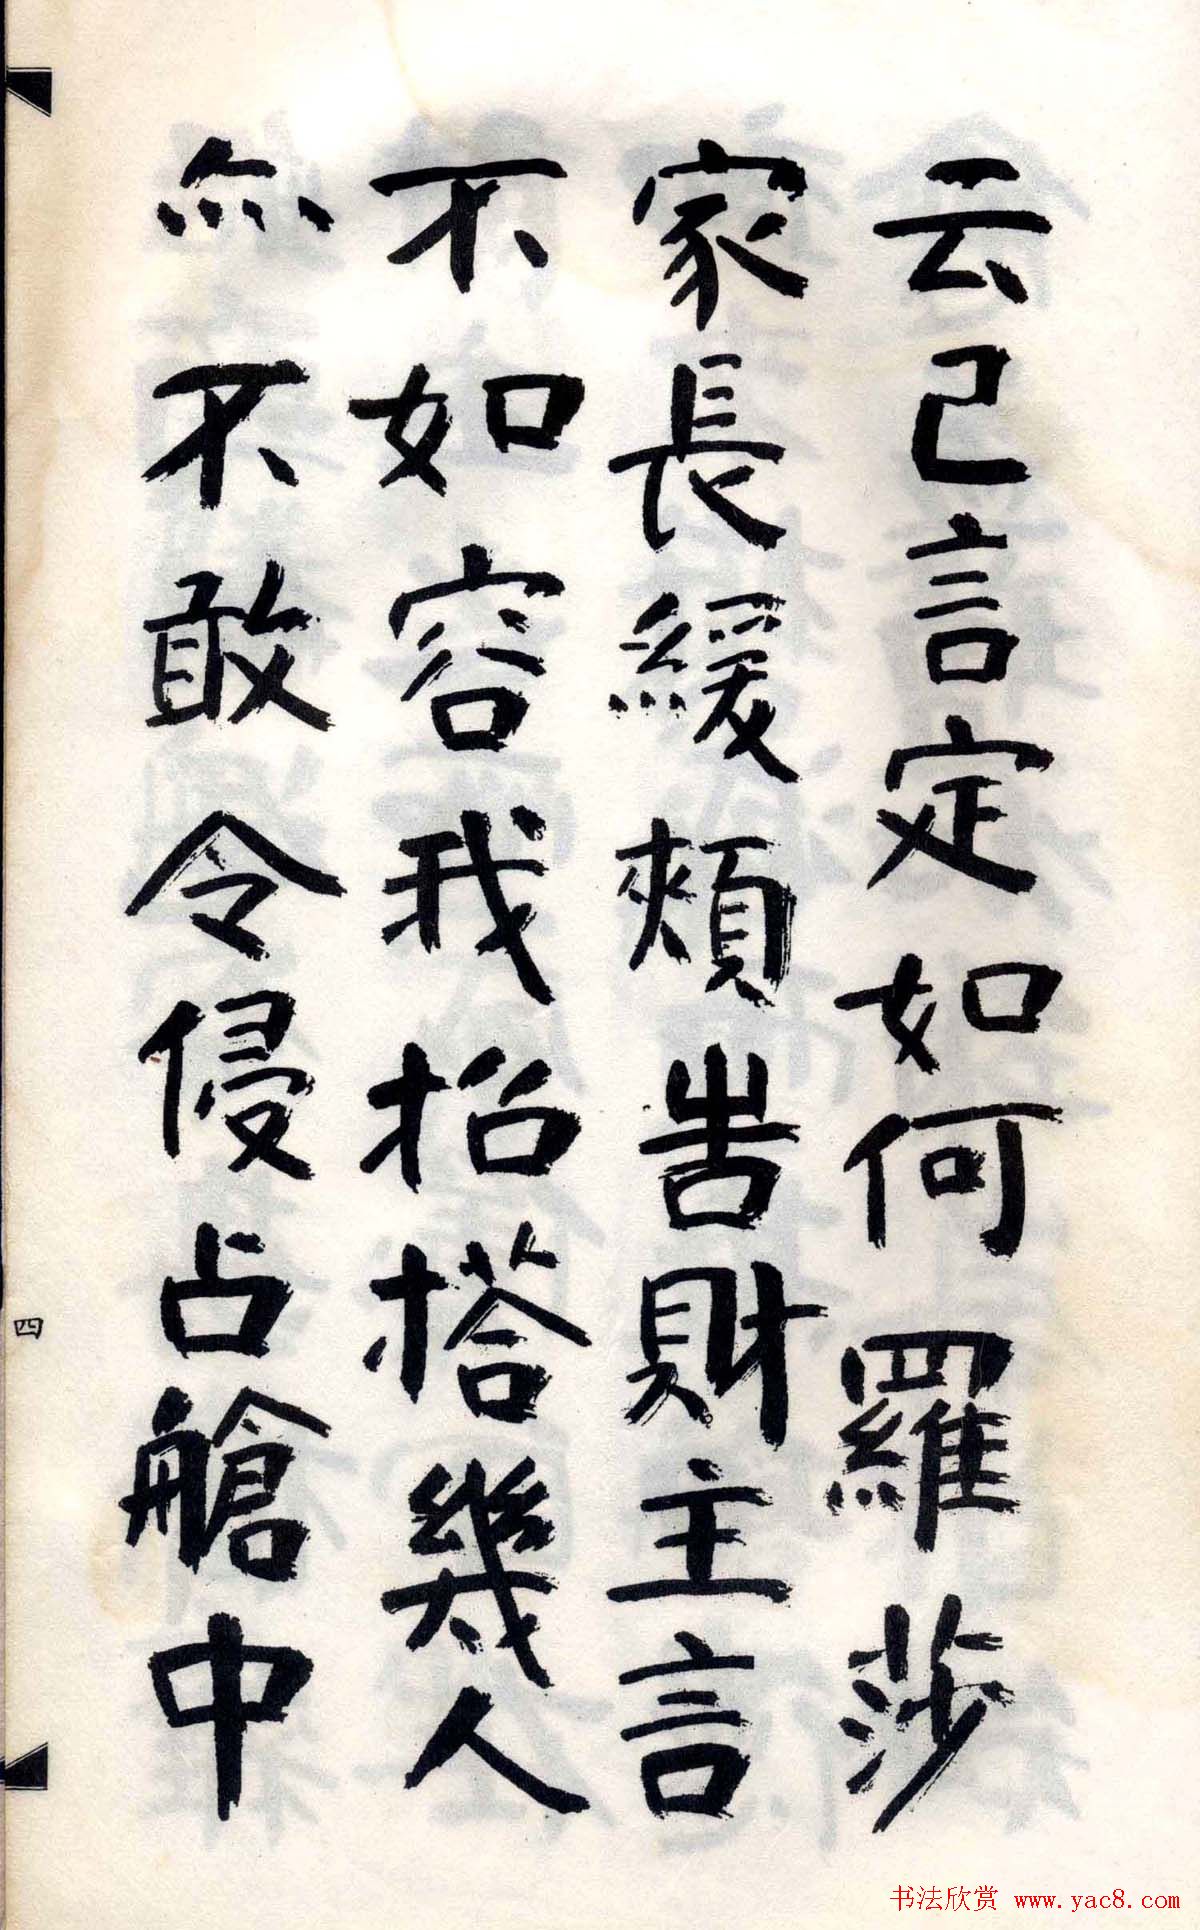 云已言定如何羅莎
家長緩頰告財主言
不如容我招搭幾人
亦不敢令侵占艙中
四
书法欣赏 www.yac8.com